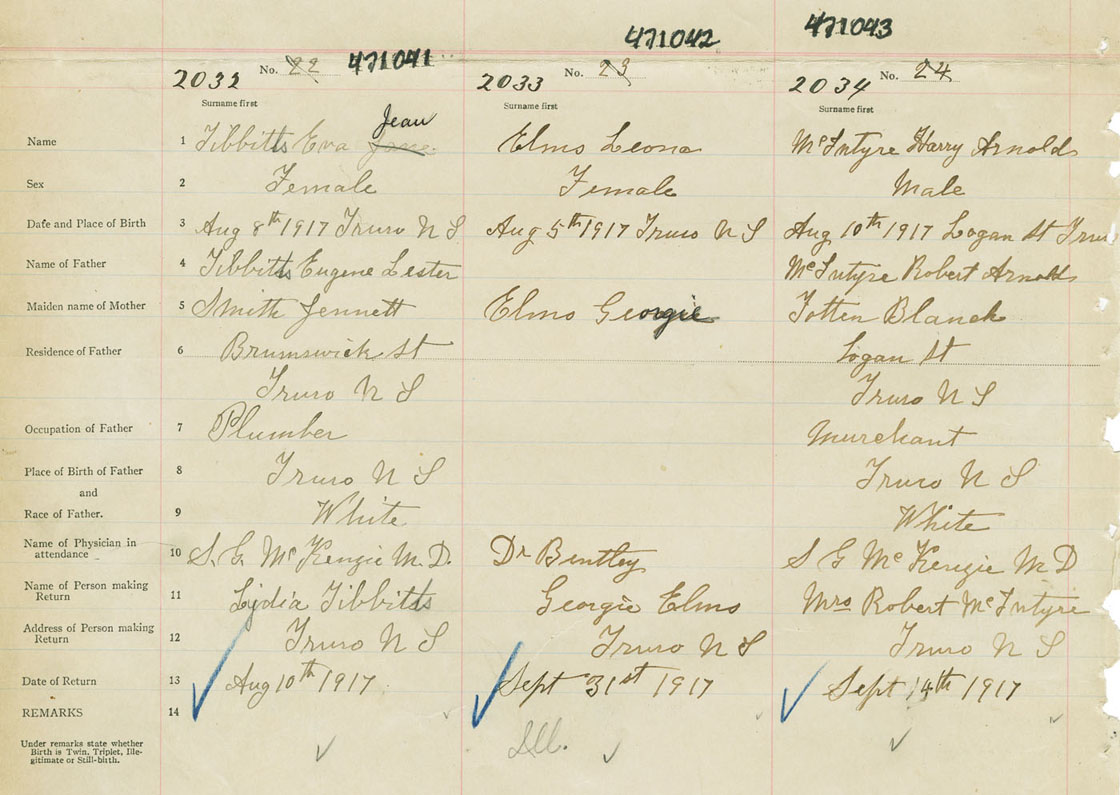 471041 471042 471043
2032 No. 22 2033 No. 23 2034 No. 24
Surname first Surname first Surname first
Jean
Name 1 Tibbitts Eva Jane Elmo Leona McIntyre Harry Arnold
Sex 2 Female Female Male
Date and Place of Birth 3 Aug 8th 1917 Truro N S Aug 5th 1917 Truro N S Aug 10th 1917 Logan St Truro
Name of Father 4 Tibbitts Eugene Lester McIntyre Robert Arnold
Maiden name of Mother 5 Smith Jennett Elmo Georgie Totten Blanch
Residence of Father 6 Brunswick St Logan St
Truro N S Truro N S
Occupation of Father 7 Plumber Murchant
Place of Birth of Father 8 Truro N S Truro N S
and
Race of Father. 9 White White
Name of Physician in
attendance 10 S. G. McKenzie M.D. Dr Bentley S G McKenzie M D
Name of Person making
Return 11 Lydia Tibbitts Georgie Elmo Mrs Robert McIntyre
Address of Person making
Return 12 Truro N S Truro N S Truro N S
Date of Return 13 Aug 10th 1917 Sept 31st 1917 Sept 14th 1917
REMARKS 14
Under remarks state whether
Birth is Twin, Triplet, Ille-
gitimate or Still-birth.
Ill.